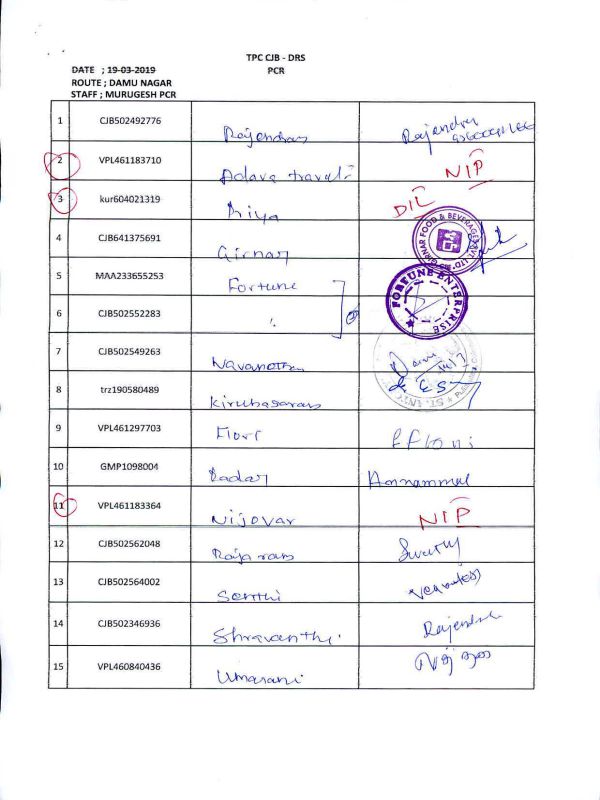 TPC CJB - DRS
PCR
DATE ; 19-03-2019
ROUTE ; DAMU NAGAR
STAFF ; MURUGESH PCR
1 CJB502492776 Rajendran Rajendra
2 VPL461183710 Adava travels NIP
3 kur604021319 Priya D/L
GIRNAR FOOD & BEVERAGES PVT. LTD.
4 CJB641375691 Girnar
5 MAA233655253 Fortune
FORTUNE ENTERPRISE
6 CJB502552283
7 CJB502549263 Navaneethan
8 trz190580489 Kirubasaran
9 VPL461297703
10 GMP1098004 Annammal
11 VPL461183364 Nijovar NIP
12 CJB502562048 Rajaram
13 CJB502564002 Senthi
14 CJB502346936 Shravanthi. Rajendra
15 VPL460840436 Umarani